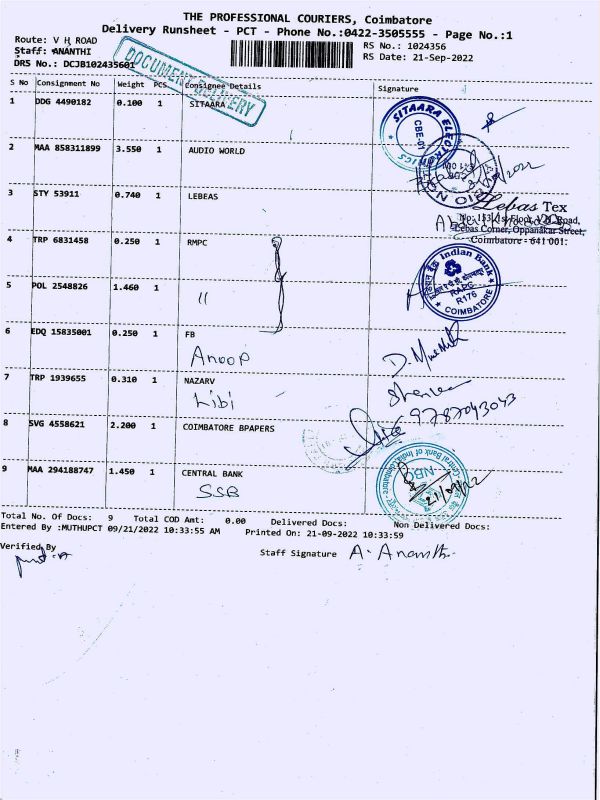 THE PROFESSIONAL COURIERS, Coimbatore
Delivery Runsheet - PCT - Phone No.:0422-3505555 - Page No.:1
Route: V H ROAD
RS No.: 1024356
Staff: ANANTHI
RS Date: 21-Sep-2022
DRS No.: DCJB102435601
DOCUMENT DELIVERY
S No Consignment No Weight PCS Consignee Details Signature
1 DDG 4490182 0.100 1 SITAARA
SITAARA ELECTRONICS
CBE-01
2 MAA 858311899 3.550 1 AUDIO WORLD
3 STY 53911 0.740 1 LEBEAS
Lebas Tex
No: 153, 1st Floor, V.H. Road,
Lebas Corner, Oppanakar Street,
Coimbatore - 641 001.
4 TRP 6831458 0.250 1 RMPC
Indian Bank
RAPC
R176
COIMBATORE
5 POL 2548826 1.460 1 "
6 EDQ 15835001 0.250 1 FB
Anoop
7 TRP 1939655 0.310 1 NAZARV
Libi
9787043043
8 SVG 4558621 2.200 1 COIMBATORE BPAPERS
9 MAA 294188747 1.450 1 CENTRAL BANK
SSB
Central Bank of India, Coimbatore
21/09/22
Total No. Of Docs: 9 Total COD Amt: 0.00 Delivered Docs: Non Delivered Docs:
Entered By :MUTHUPCT 09/21/2022 10:33:55 AM Printed On: 21-09-2022 10:33:59
Verified By
Staff Signature A. Ananthi